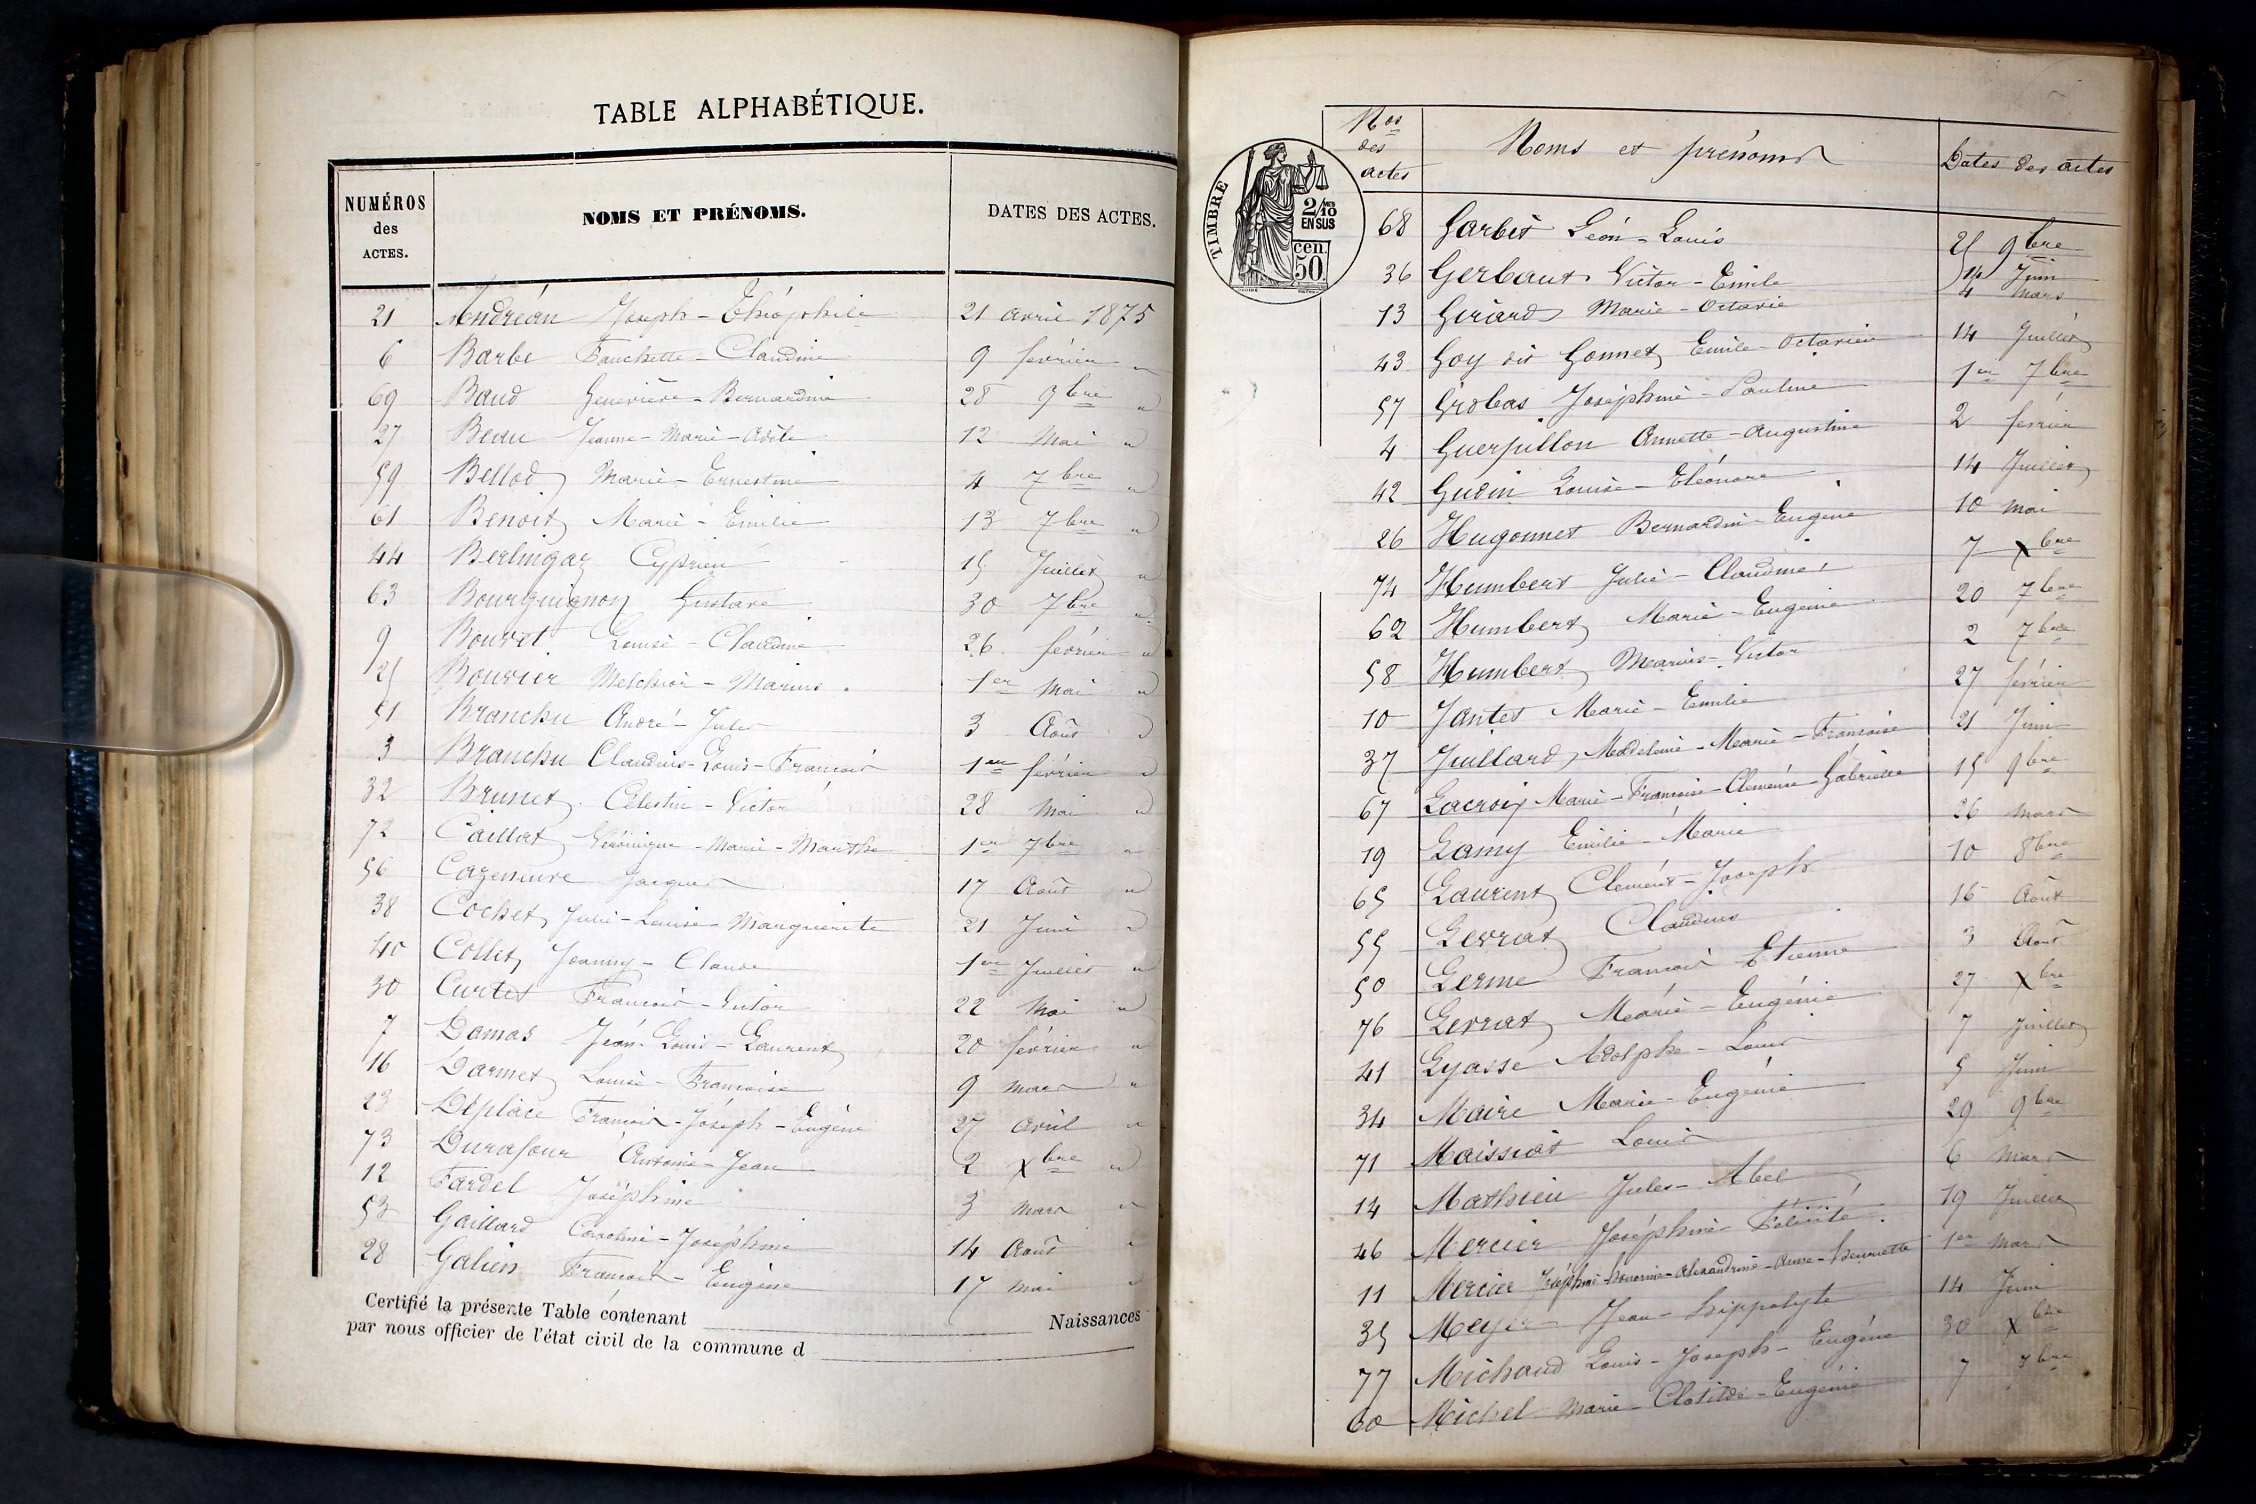 TABLE ALPHABÉTIQUE.
NUMÉROS des ACTES. NOMS ET PRÉNOMS. DATES DES ACTES.
21 Andréan Joseph - Théophile 21 avril 1875
6 Barbe Fanchette - Claudine 9 février "
69 Baud Geneviève - Bernardine 28 9bre "
27 Beau Jeanne - Marie - Adèle 12 Mai "
59 Bellod Marie - Ernestine 4 7bre "
61 Benoit Marie - Emilie 13 7bre "
44 Berlingaz Cyprien 15 Juillet "
63 Bourguignon Gustave 30 7bre "
9 Bouvet Louise - Claudine 26 février "
25 Bouvier Melchior - Marius 1er Mai "
51 Branchu André - Jules 3 Août "
3 Branchu Claudius - Louis - François 1er février "
32 Brunet Célestin - Victor 28 Mai "
72 Caillat Véronique - Marie - Marthe 1er 7bre "
56 Cazeneuve Jacques 17 Août "
38 Cochet Julie - Louise - Marguerite 21 Juin "
40 Collet Joanny - Claude 1er Juillet "
30 Curtet François - Victor 22 Mai "
7 Damas Jean - Louis - Laurent 20 février "
16 Darmet Louise - Françoise 9 mars "
23 Déplace François - Joseph - Eugène 27 avril "
73 Durafour Antoine - Jean 2 Xbre "
12 Fardel Joséphine 3 Mars "
53 Gaillard Caroline - Joséphine 14 Août "
28 Galien François - Eugène 17 mai "
Certifié la présente Table contenant Naissances
par nous officier de l'état civil de la commune d
TIMBRE
2/10 EN SUS
cen. 50.
Nos des actes Noms et prénoms Dates des actes
68 Garbit Léon - Louis 25 9bre
36 Gerbaut Victor - Emile 14 Juin
13 Girard Marie - Octavie 4 mars
43 Goy dit Gonnet Emile - Octavien 14 Juillet
57 Grobas Joséphine - Pauline 1er 7bre
4 Guerpillon Annette - Augustine 2 février
42 Gudin Louise - Eléonore 14 Juillet
26 Hugonnet Bernardin - Eugène 10 mai
74 Humbert Julie - Claudine 7 Xbre
62 Humbert Marie - Eugénie 20 7bre
58 Humbert Marius - Victor 2 7bre
10 Jantet Marie - Emilie 27 février
37 Juillard Madeleine - Marie - Françoise 21 Juin
67 Lacroix Marie - Françoise - Clémence - Gabrielle 15 9bre
19 Lamy Emilie - Marie 26 mars
65 Laurent Clément - Joseph 10 8bre
55 Levrat Claudius 16 Août
50 Lerme François - Etienne 3 Août
76 Levrat Marie - Eugénie 27 Xbre
41 Lyasse Adolphe - Louis 7 Juillet
34 Maire Marie - Eugénie 5 Juin
71 Maissiat Louis 29 9bre
14 Mathieu Jules - Abel 6 Mars
46 Mercier Joséphine Félicité 19 Juillet
11 Mercier Joséphine - Honorine - Alexandrine - Anne - Henriette 1er Mars
35 Meyer Jean - Hippolyte 14 Juin
77 Michaud Louis - Joseph - Eugène 30 Xbre
60 Michel Marie - Clotilde - Eugénie 7 7bre